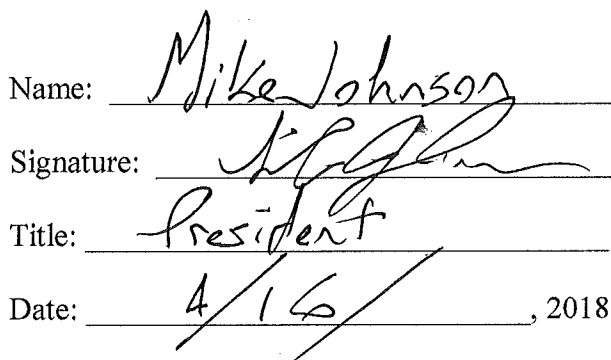 Name: Mike Johnson
Signature:
Title: President
Date: 4/16/, 2018